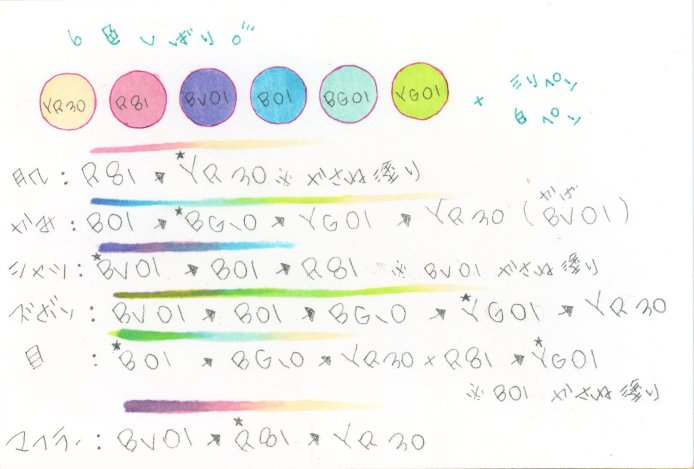 6色しばりで
YR30 R81 BV01 B01 BG01 YG01 × ミリペン
白ペン
肌：R81 → ★YR30 ※かさね塗り
かみ：B01 → ★BG10 → YG01 → YR30 (かげ BV01)
シャツ：★BV01 → B01 → R81 ※BV01 かさね塗り
ズボン：BV01 → B01 → BG10 → ★YG01 → YR30
目：★B01 → BG10 → YR30 × R81 → ★YG01
※B01 かさね塗り
マフラー：BV01 → ★R81 → YR30